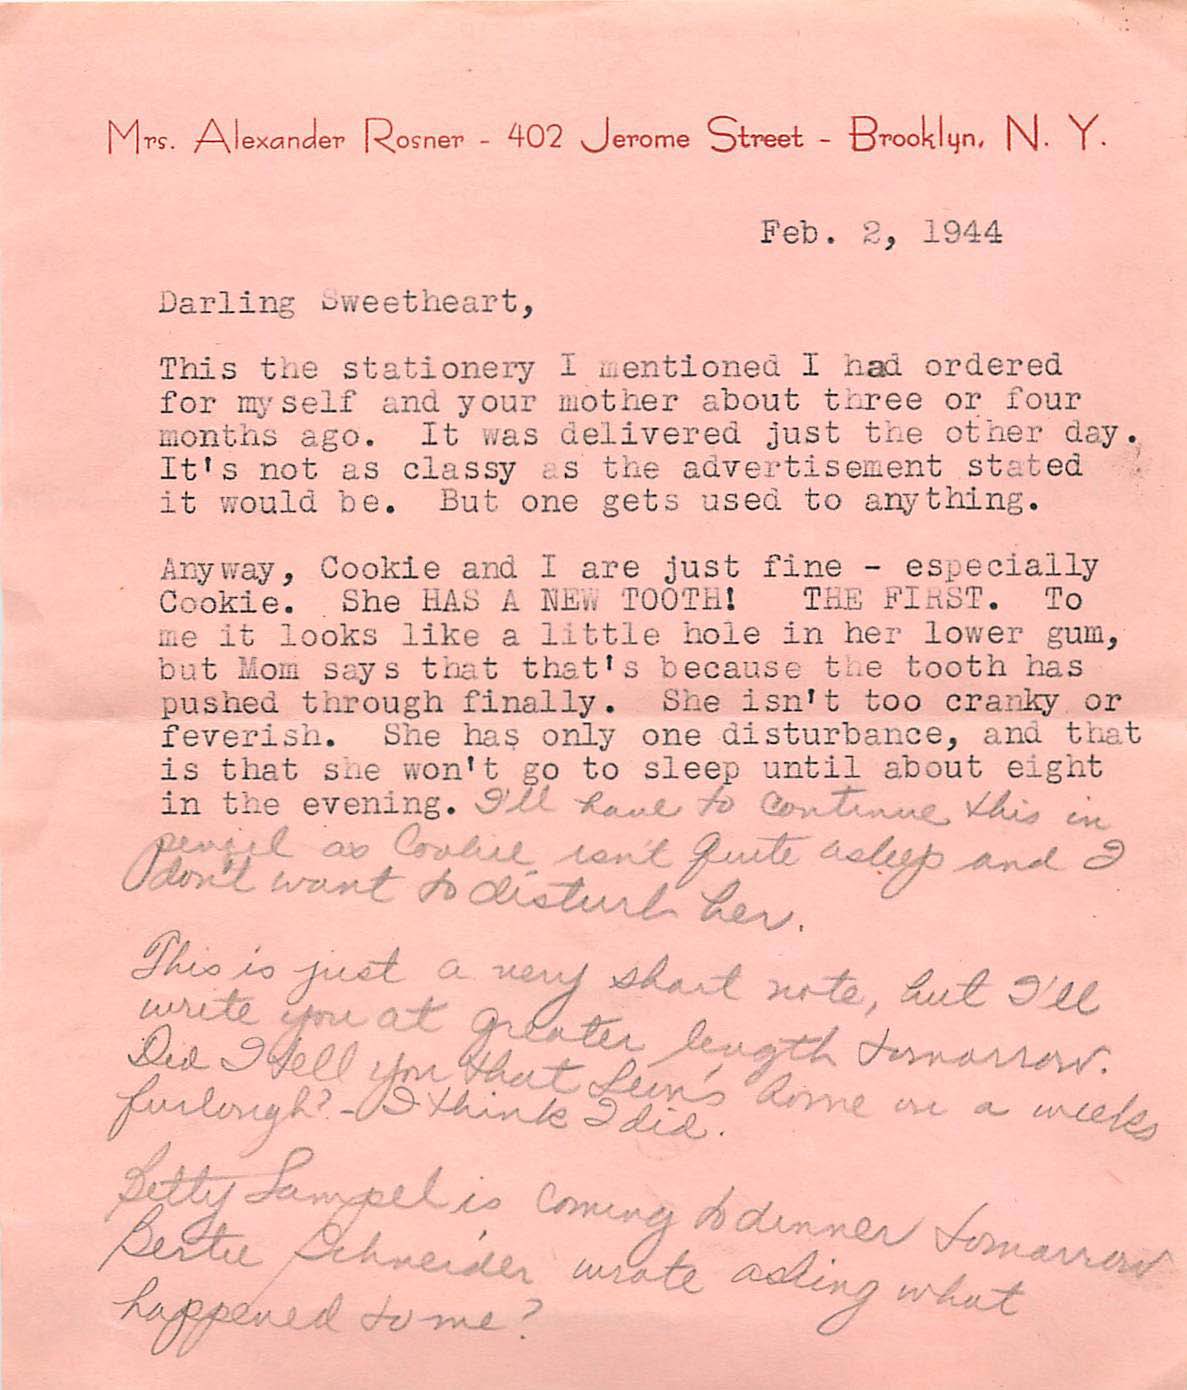 Mrs. Alexander Rosner - 402 Jerome Street - Brooklyn, N. Y.
Feb. 2, 1944
Darling Sweetheart,
This the stationery I mentioned I had ordered
for myself and your mother about three or four
months ago. It was delivered just the other day.
It's not as classy as the advertisement stated
it would be. But one gets used to anything.
Anyway, Cookie and I are just fine - especially
Cookie. She HAS A NEW TOOTH! THE FIRST. To
me it looks like a little hole in her lower gum,
but Mom says that that's because the tooth has
pushed through finally. She isn't too cranky or
feverish. She has only one disturbance, and that
is that she won't go to sleep until about eight
in the evening. I'll have to continue this in
pencil as Cookie isn't quite asleep and I
don't want to disturb her.
This is just a very short note, but I'll
write you at greater length tomorrow.
Did I tell you that home on a weeks
furlough? - I think I did.
Betty Sampel is coming to dinner tomorrow
Bertie Schneider wrote asking what
happened to me?